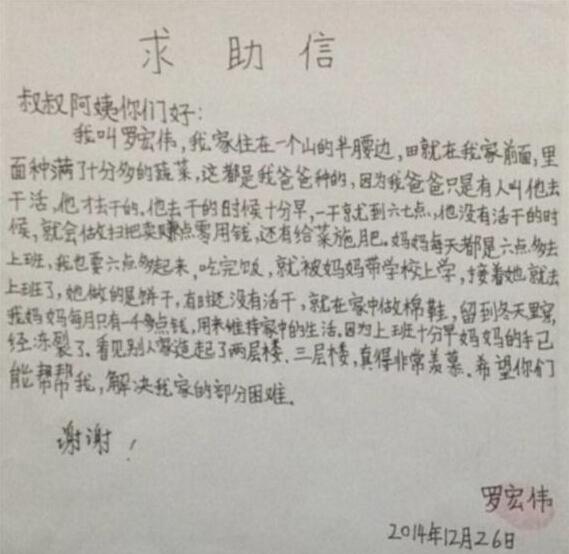 求助信
叔叔阿姨你们好:
我叫罗宏伟,我家住在一个山的半腰边,田就在我家前面,里
面种满了十分多的蔬菜,这都是我爸爸种的,因为我爸爸只是有人叫他去
干活,他才去干的,他去干的时候十分早,一干就到六七点,他没有活干的时
候,就会做扫把卖赚点零用钱,还有给菜施肥。妈妈每天都是六点多去
上班,我也要六点多起来,吃完饭,就被妈妈带学校上学,接着她就去
上班了,她做的是饼干,有时没有活干,就在家中做棉鞋,留到冬天里穿
我妈妈每月只有一千多点钱,用来维持家中的生活,因为上班十分早妈妈的手已
经冻裂了。看见别人家造起了两层楼、三层楼,真得非常羡慕。希望你们
能帮帮我,解决我家的部分困难。
谢谢!
罗宏伟
2014年12月26日